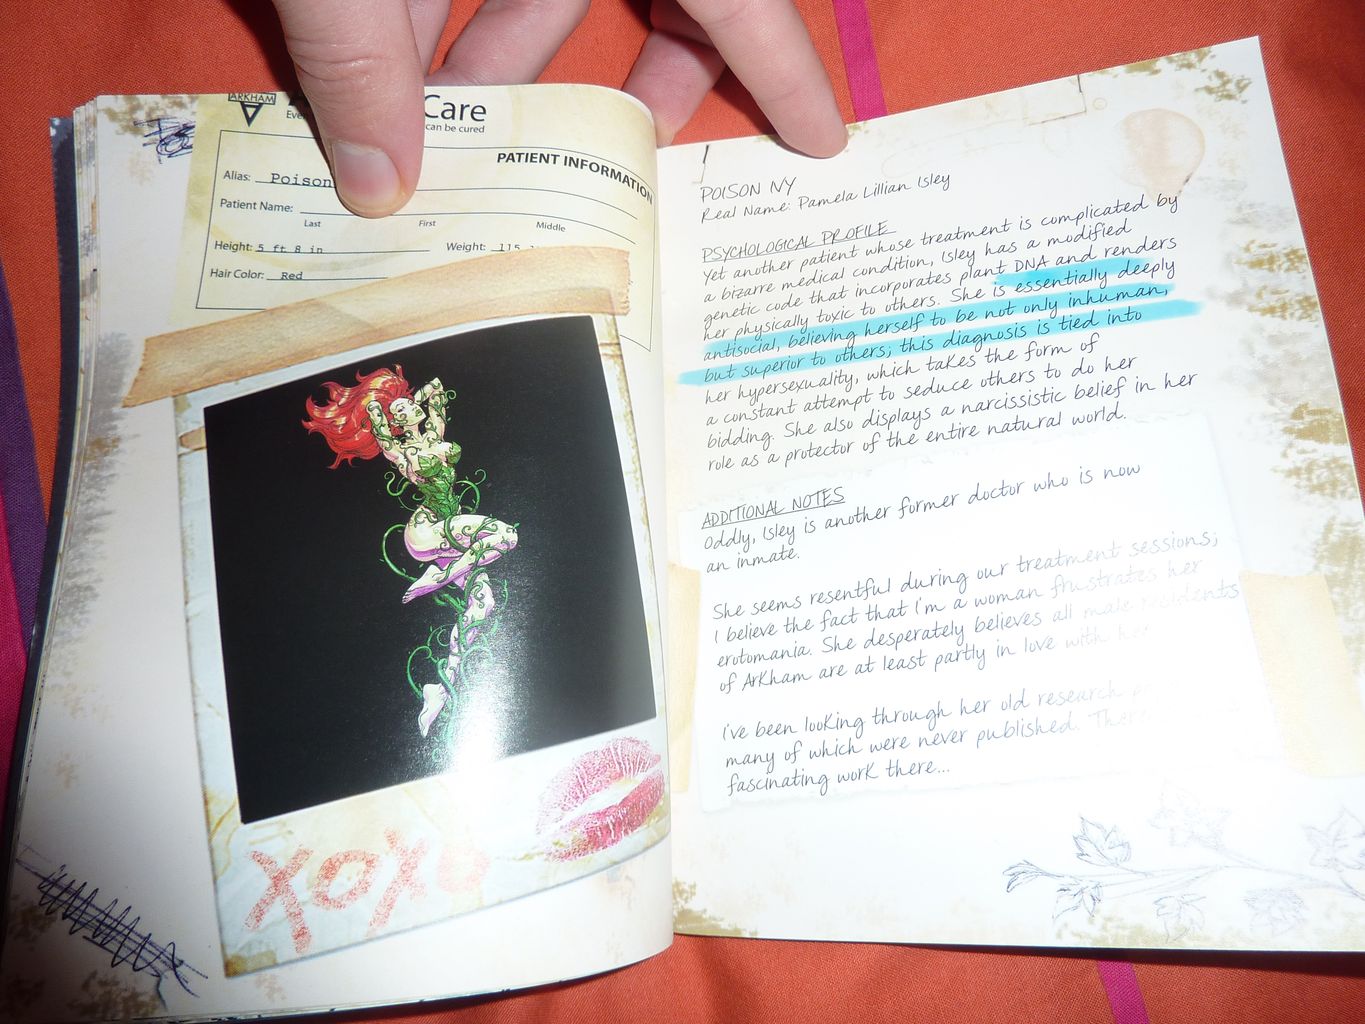 ARKHAM
Care
can be cured
PATIENT INFORMATION
Alias: Poison
Patient Name:
Last First Middle
Height: 5 ft 8 in Weight: 115
Hair Color: Red
XOXO
POISON IVY
Real Name: Pamela Lillian Isley
PSYCHOLOGICAL PROFILE
Yet another patient whose treatment is complicated by
a bizarre medical condition, Isley has a modified
genetic code that incorporates plant DNA and renders
her physically toxic to others. She is essentially deeply
antisocial, believing herself to be not only inhuman,
but superior to others; this diagnosis is tied into
her hypersexuality, which takes the form of
a constant attempt to seduce others to do her
bidding. She also displays a narcissistic belief in her
role as a protector of the entire natural world.
ADDITIONAL NOTES
Oddly, Isley is another former doctor who is now
an inmate.
She seems resentful during our treatment sessions;
I believe the fact that I'm a woman frustrates her
erotomania. She desperately believes all male residents
of Arkham are at least partly in love with her
I've been looking through her old research
many of which were never published.
fascinating work there...